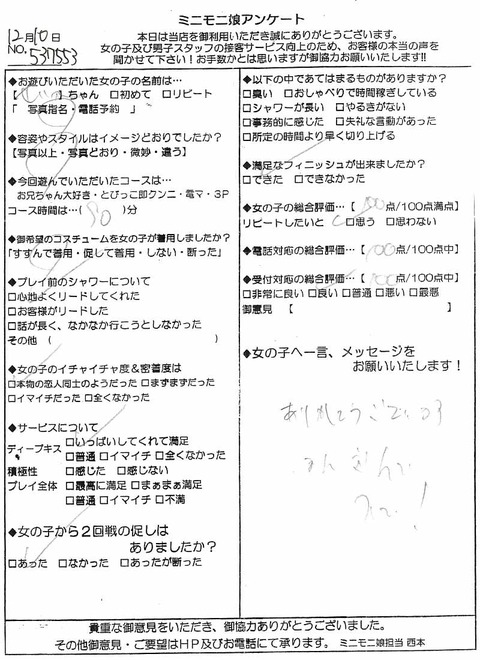 ミニモニ娘アンケート
12月10日
NO. 537553
本日は当店を御利用いただき誠にありがとうございます。
女の子及び男子スタッフの接客サービス向上のため、お客様の本当の声を
聞かせて下さい！お手数かとは思いますが御協力お願いいたします!!
◆お遊びいただいた女の子の名前は…
【 】ちゃん □初めて □リピート
「 写真指名・電話予約 」
◆容姿やスタイルはイメージどおりでしたか？
【写真以上・写真どおり・微妙・違う】
◆今回遊んでいただいたコースは…
お兄ちゃん大好き・とびっこ即クンニ・電マ・3P
コース時間は…( )分
◆御希望のコスチュームを女の子が着用しましたか？
「すすんで着用・促して着用・しない・断った」
◆プレイ前のシャワーについて
□心地よくリードしてくれた
□お客様がリードした
□話が長く、なかなか行こうとしなかった
その他 ( )
◆女の子のイチャイチャ度＆密着度は
□本物の恋人同士のようだった □まずまずだった
□イマイチだった □全くなかった
◆サービスについて
ディープキス □いっぱいしてくれて満足
□普通 □イマイチ □全くなかった
積極性 □感じた □感じない
プレイ全体 □最高に満足 □まぁまぁ満足
□普通 □イマイチ □不満
◆女の子から２回戦の促しは
ありましたか？
□あった □なかった □あったが断った
◆以下の中であてはまるものがありますか？
□臭い □おしゃべりで時間稼ぎしている
□シャワーが長い □やるきがない
□事務的に感じた □失礼な言動があった
□所定の時間より早く切り上げる
◆満足なフィニッシュが出来ましたか？
□できた □できなかった
◆女の子の総合評価…【100点/100点満点】
リピートしたいと □思う □思わない
◆電話対応の総合評価…【100点/100点中】
◆受付対応の総合評価…【100点/100点中】
□非常に良い □良い □普通 □悪い □最悪
御意見 【 】
◆女の子へ一言、メッセージを
お願いいたします！
ありがとうございます
貴重な御意見をいただき、御協力ありがとうございました。
その他御意見・ご要望はHP及びお電話にて承ります。 ミニモニ娘担当 西本